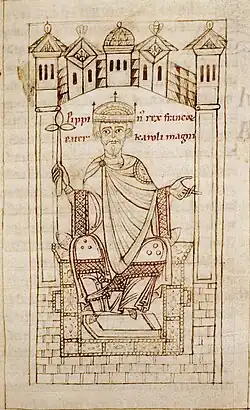 pippinꝰ rex francoꝝ
pater karoli magni